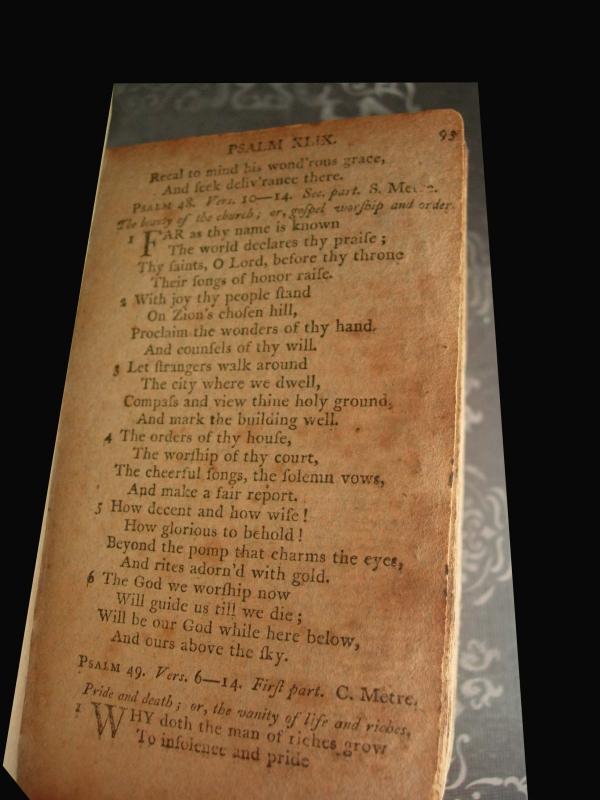 PSALM XLIX. 93
Recal to mind his wond'rous grace,
And ſeek deliv'rance there.
PSALM 48. Vers. 10—14. Sec. part. S. Metre.
The beauty of the church; or, goſpel worſhip and order.
1 FAR as thy name is known
The world declares thy praiſe;
Thy ſaints, O Lord, before thy throne
Their ſongs of honor raiſe.
2 With joy thy people ſtand
On Zion's choſen hill,
Proclaim the wonders of thy hand,
And counſels of thy will.
3 Let ſtrangers walk around
The city where we dwell,
Compaſs and view thine holy ground,
And mark the building well.
4 The orders of thy houſe,
The worſhip of thy court,
The cheerful ſongs, the ſolemn vows,
And make a fair report.
5 How decent and how wiſe!
How glorious to behold!
Beyond the pomp that charms the eyes,
And rites adorn'd with gold.
6 The God we worſhip now
Will guide us till we die;
Will be our God while here below,
And ours above the ſky.
PSALM 49. Vers. 6—14. Firſt part. C. Metre.
Pride and death; or, the vanity of life and riches.
1 WHY doth the man of riches grow
To inſolence and pride